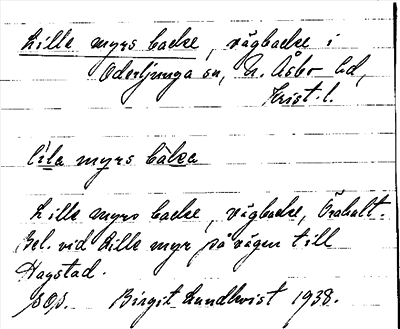 Lille myrs backe, vägbacke i
Oderljunga sn, N. Åsbo hd,
Krist. l.
lila myrs baka
Lille myrs backe, vägbacke, Örahult.
Bel. vid Lille myr på vägen till
Hagstad.
SOJ. Birgit Lundkvist 1938.